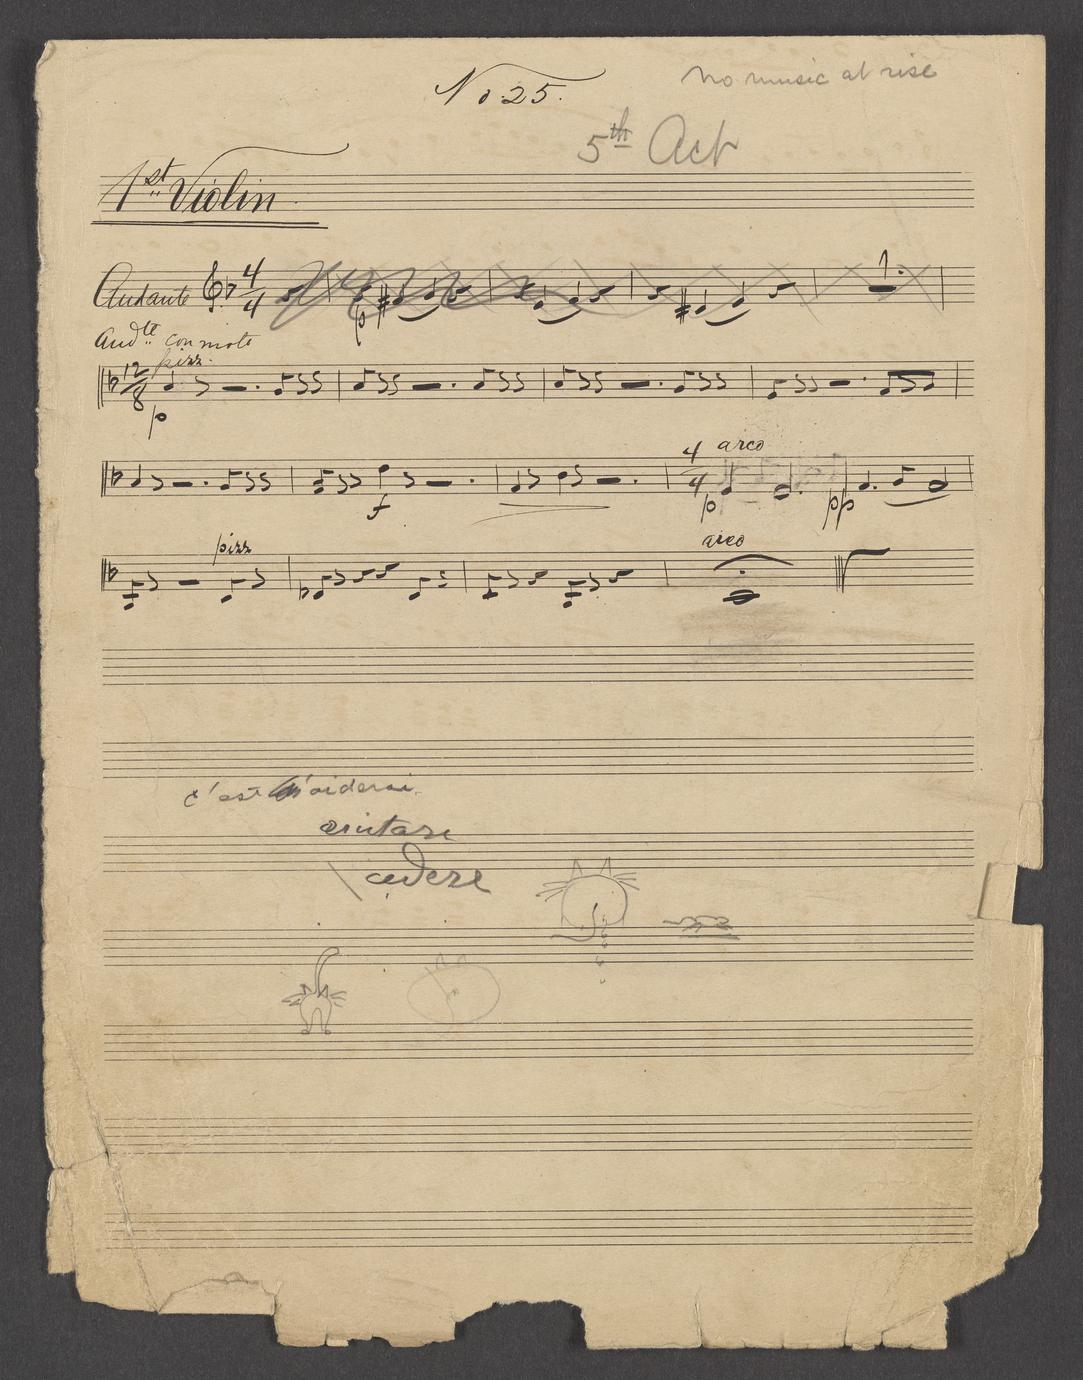 No. 25.
no music at rise
5th Act
1st Violin
Andante 4/4
p
Andte con moto
pizz.
12/8
p
4/4 arco
f
p
pp
pizz
arco
c'est m'aiderai
aiutare
cedere